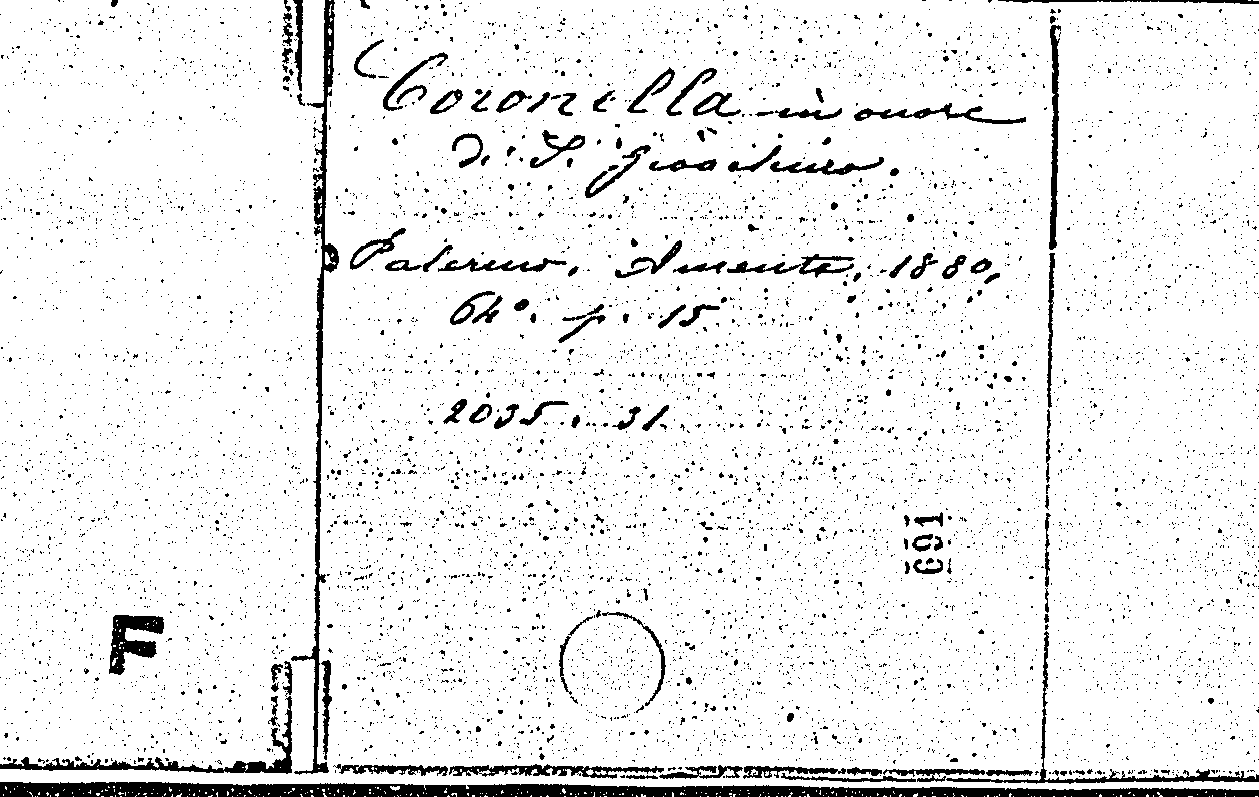 Coronella in onore
di S. Gioachino.
Palermo, Amenta, 1880,
64°. p. 15
2035. 31
691
F